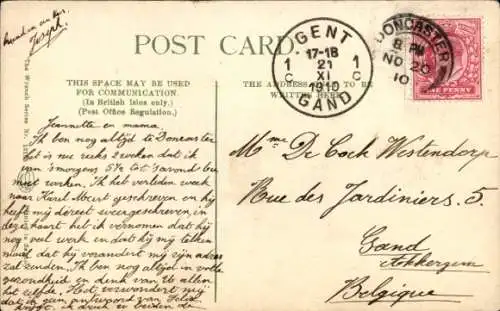 Joseph.
POST CARD.
The Wrench Series
THIS SPACE MAY BE USED
FOR COMMUNICATION.
(In British Isles only.)
(Post Office Regulation.)
THE ADDRESS ONLY TO BE
WRITTEN HERE
GENT
17-18
1 21 1
C XI C
1910
GAND
DONCASTER
8 PM
NO 20
10
ONE PENNY
Jeannette en mama
Ik ben nog altijd te Doncaster
het is nu reeks 2 weken dat ik
van 's morgens 5 7e tot 's avonds
niet werken. Ik heb verleden week
naar Karel Albert geschreven en hij
heeft mij direct weergeschreven, in
deze kaart heb ik vernomen dat hij
nog veel werk en dat hij mij telken
maal dat hij verandert mij zijn adres
zal zenden. Ik ben nog altijd in volle
gezondheid en denk van U allen
het zelfde. Het verwondert mij
dat ik geen antwoord van
ik druk U beiden de
Mme De Cock Westendorp
Rue des Jardiniers. 5.
Gand
Akkergem
Belgique